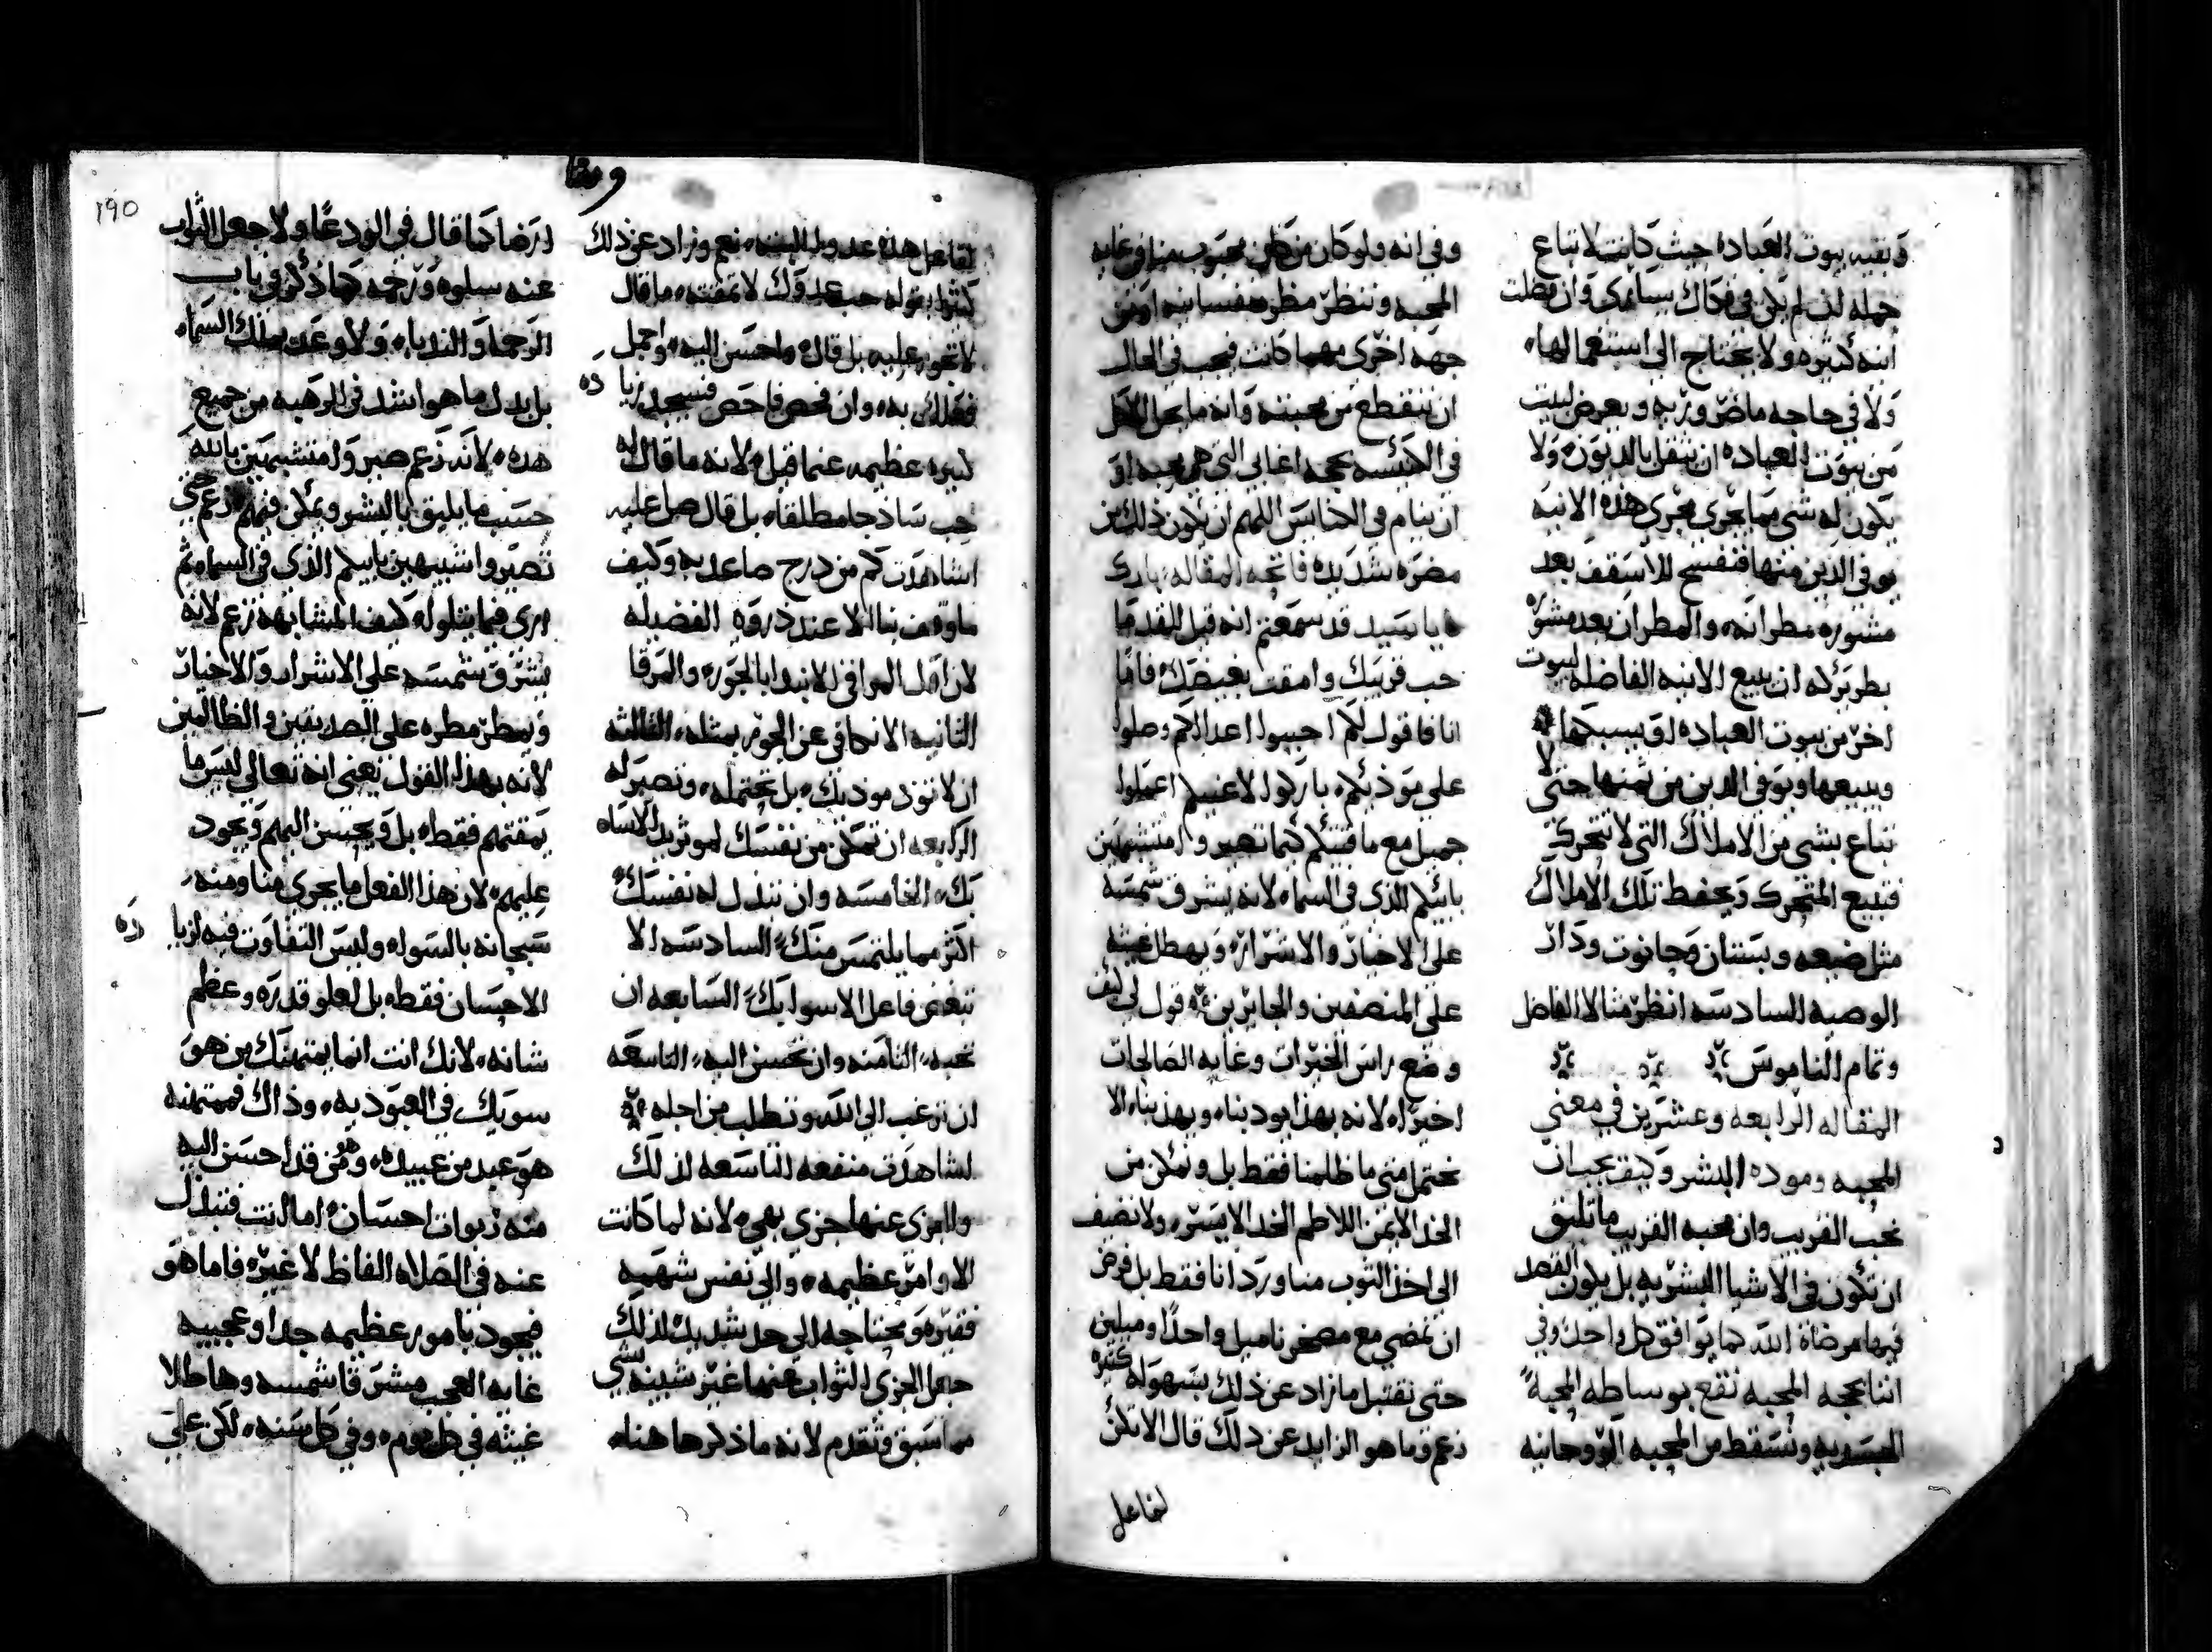 وبقيه بيوت العباده حيث كانت لا تباع
جمله لن لم يكن في فكاك سبايا كي وان فضلت
انيه كثيره ولا يحتاج الى استعمالها
ولا في حاجه ماضروريه ويعرض لبيت
من بيوت العباده ان يثقل بالديون ولا
يكون له شي مما يجري مجرى هذه الانيه
يوفي الدين منها فنفسح للاسقف بعد
مشوره مطرانه والمطران بعد مشوره
بطريركه ان يبيع الانيه الفاضله لبيوت
اخر من بيوت العباده او يسبكها
ويبيعها ويوفي الدين من ثمنها حتى لا
تباع بشي من الاملاك التي لا تتحرك
فتبيع المتحرك ويحفظ تلك الاملاك
مثل ضيعه وبستان وحانوت ودار
الوصيه السادسه انظر مثالا الفاضل
وتمام الناموس
المقاله الرابعه وعشرين في معنى
المحبه وموده البشر وكيف يجب ان
نحب القريب وان محبه القريب ما تليق
ان تكون في الاشيا البشريه بل يكون القصد
فيها مرضاة الله كما يوافق كل واحد وفي
اننا بحجه المحبه نقع بوساطه المحبه
ونسقط من المحبه الروحانيه
وفي انه ولو كان من كان محبوب منا في غايه
المحبه وننظر مظره نفسانيه او من
جهه اخرى مهما كانت فيجب في الحال
ان ننقطع من محبته وانه ما يحل الاكل
في الكنيسه بحجه اغابي التي هي محبه او
ان ينام في الكنايس اللهم ان يكون ذلك من
مضره شديده فاتحه المقاله بارك
يا سيد قد سمعتم انه قيل للقدما
حب قريبك وامقت بغيضك فاما
انا فاقول لكم احبوا اعداكم وصلوا
على موذيكم باركوا لاعنيكم اعملوا
جميل مع ماقتيكم كيما تصيروا متشبهين
بابيكم الذي في السماء لانه يشرق شمسه
على الاخيار والاشرار ويهطل غيثه
على المنصفين والجايرين قول لي كيف
وضع راس الخيرات وغايه الصالحات
اخيرا لانه بهذا يودبنا ويهذبنا الا
نحتمل متى ما ظلمنا فقط بل ونمكن من
الخد الايمن اللاطم الخد الايسر ولا نضيف
الى اخذ الثوب منا وردانا فقط بل فرض
ان نمضي مع مصخرنا ميل واحدا وميلين
حتى نقتبل ما زاد عن ذلك بسهوله كثيره
زعم وما هو الزايد عن ذلك قال الا تكن
لفاعل
ومقا
190
لفاعل هذه عدوا البته نعم وزاد عن ذلك
كثيرا بقوله حب عدوك لا تمقته ما قال
لا تجور عليه بل قال واحسن اليه واجمل
فعلك به وان فحص فاحص فسيجد زياده
كبيره عظيمه عنما قيل لانه ما قال له
حب ساذجا مطلقا بل قال صل عليه
اشاهدت كم من درج صاعد به وكيف
ما وقف بنا الا عند ذروه الفضيله
لان اول المراقي الا نبدا بالجوره والمرقا
الثانيه الا نكافي عن الجور بمثله الثالثه
ان لا تود موذيك بل تحتمله وتصير له
الرابعه ان تمكن من نفسك لموثر الاساه
بك الخامسه وان تبذل له نفسك
اكثر مما يلتمس منك السادسه الا
تبغض فاعل الاسوا بك السابعه ان
تحبه الثامنه وان تحسن اليه التاسعه
ان ترغب الى الله وتطلب من اجله
لشاهدت منفعه التاسعه لذلك
والجزى عنها جزى بهي لانه لما كانت
الاوامر عظيمه والى نفس شهمه
فقيره ومحتاجه الى حد شديد لذلك
جعل الجزى الثواب عنها غير شبيه لشي
مما سبق وتقدم لانه ما ذكرها هنا
ارضا كما قال في الودعا ولا جعل الثواب
عنه سلوه ورحمه كما ذكر في باب
الرحما والندبا ولا وعد بملك السماء
بل بدل ما هو اشد في الرهبه من جميع
هذه لانه زعم صيروا متشبهين بالله
حسب ما يليق بالبشر ويمكن فيهم زعم حتى
تصيروا شبيهين بابيكم الذي في السماء ثم
ارى فيما يتلوه كيف المشابهه زعم لانه
يشرق شمسه على الاشرار والاخيار
ويمطر مطره على الصديقين والظالمين
لانه بهذا القول يعني انه تعالى ليس ما
يمقتهم فقط بل ويحسن اليهم ويجود
عليهم لان هذا الفعل ما يجري منا ومنه
سبحانه بالسواه وليس التفاوت فيه لزياده
الاحسان فقط بل لعلو قدره وعظم
شانه لانك انت انما يمتهنك من هو
سويك في العبوديه وذاك فممتهنه
هو عبد من عبيده وهو من قد احسن اليه
منه ربوات احسان اما انت فتبذل
عنه في الصلاه الفاظ لا غير فاما هو
فيجود بامور عظيمه جدا وعجيبه
غايه العجب مشرقا شمسه وهاطلا
غيثه في كل يوم وفي كل سنه لكن على